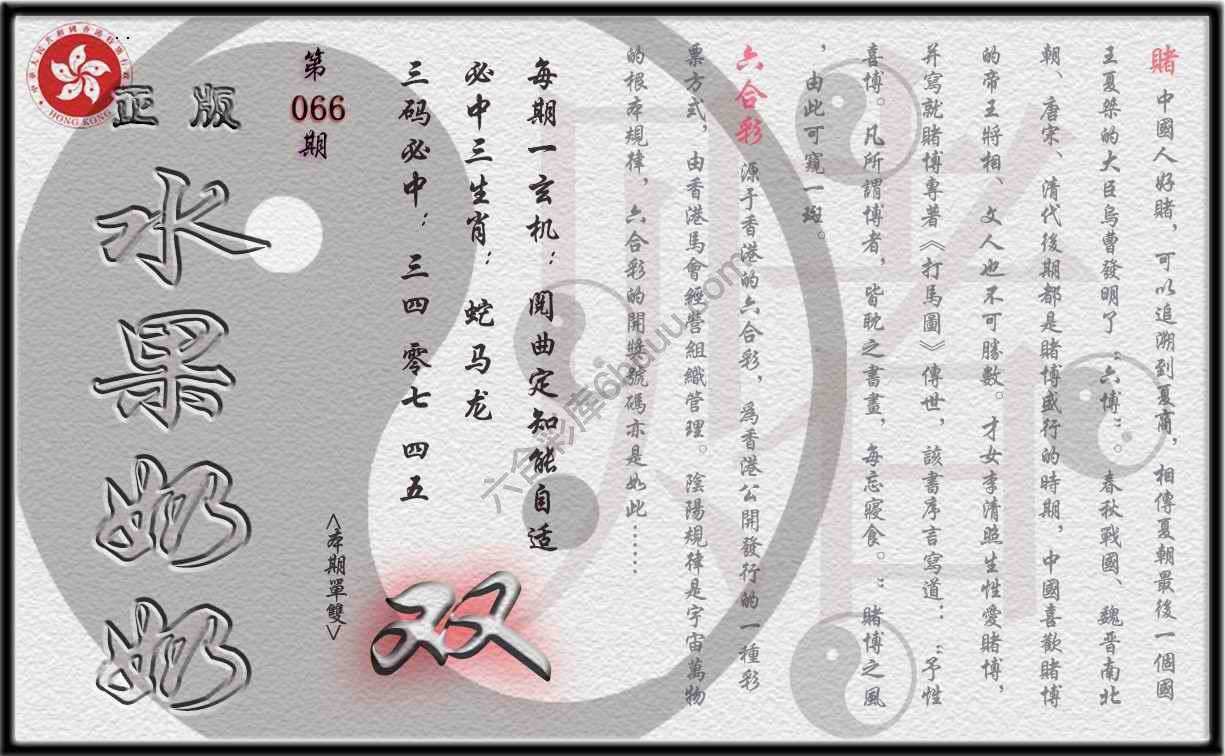 賭中國人好賭，可以追溯到夏商，相傳夏朝最後一個國
王夏桀的大臣烏曹發明了“六博”。春秋戰國、魏晋南北
朝、唐宋、清代後期都是賭博盛行的時期，中國喜歡賭博
的帝王將相、文人也不可勝數。才女李清照生性愛賭博，
并寫就賭博專著《打馬圖》傳世，該書序言寫道：：“予性
喜博。凡所謂博者，皆耽之書畫，每忘寢食。”賭博之風
，由此可窺一斑。
六合彩源于香港的六合彩，為香港公開發行的一種彩
票方式，由香港馬會經營組織管理。陰陽規律是宇宙萬物
的根本規律，六合彩的開獎號碼亦是如此……
每期一玄机：閱曲定知能自适
必中三生肖：蛇马龙
三码必中：三四 零七 四五
第
066
期
<本期單雙>
双
正版
水果奶奶
中華人民共和國香港特別行政區
HONG KONG
六合彩库6hduu.com
賭